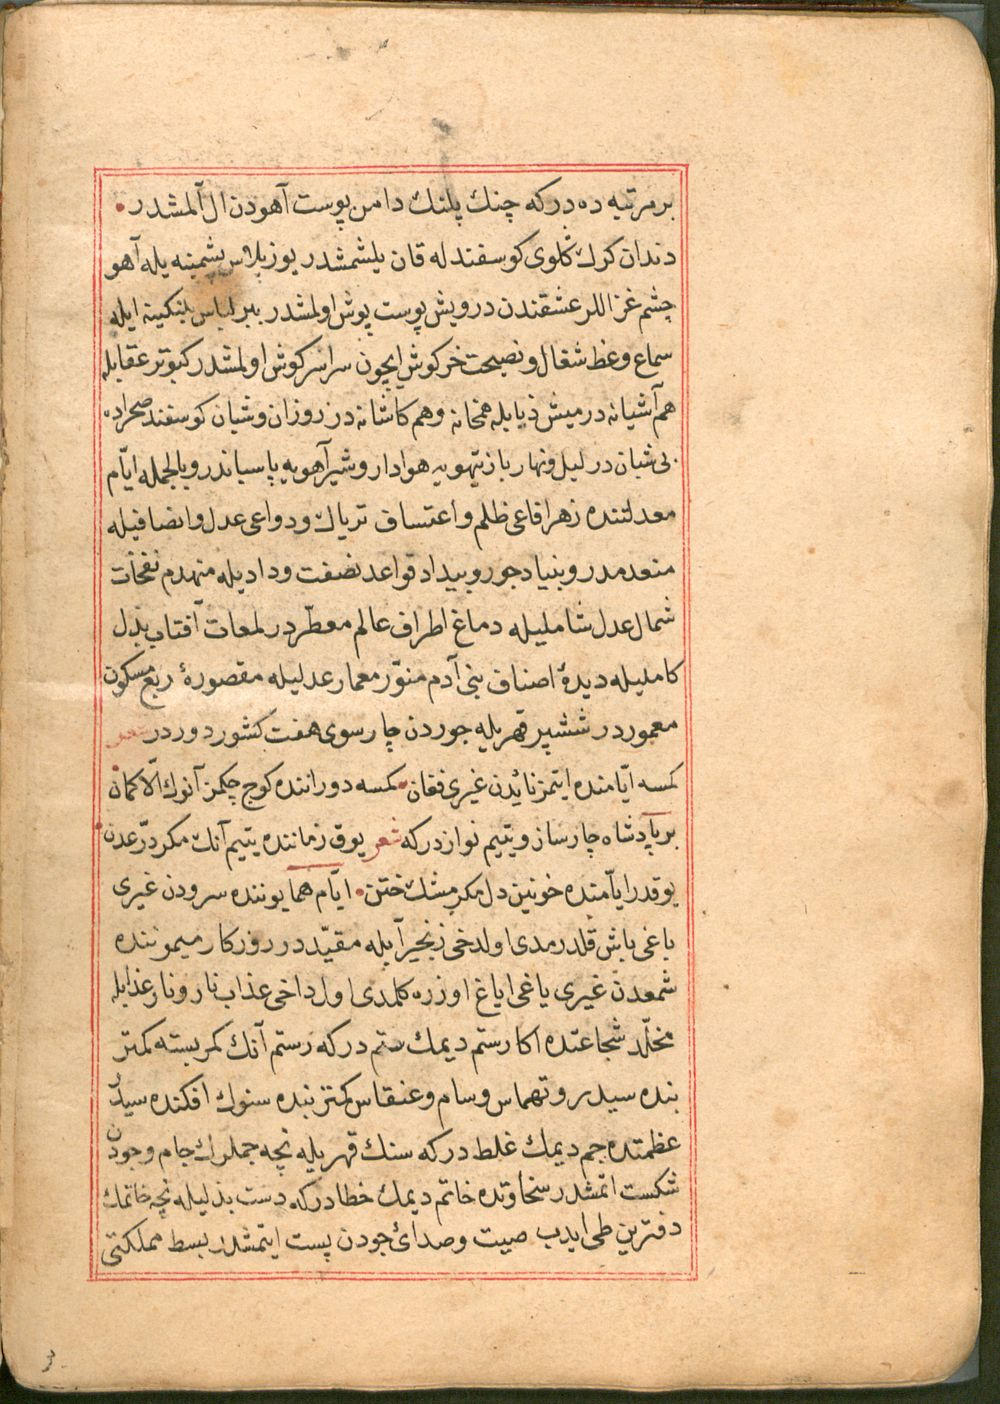 بر مرتبه ده در كه چنك پلنك دامن پوست آهودن ال آلمشدر
دندان كرك كلوى كوسفندله قان يلشمشدر يوز پلاس پشمينه يله آهو
چشم غزاللر عشقندن درويش پوست پوش اولمشدر ببر لباس پلنكينه ايله
سماع وعظ شغال و نصيحت خركوش ايچون سراسر كوش اولمشدر كبوتر عقابله
هم آشيانه در ميش ذيابله همخانه وهم كاشانه در روزان وشبان كوسفند صحراده
بى شبان در ليل ونهار باز تيهويه هوادار وشير آهويه پاسباندر وبالجمله ايّام
معدلتنده زهر افاعى ظلم واعتساف ترياك ودواعى عدل وانصافيله
منعدمدر وبنياد جور وبيداد قواعد نصفت وداديله منهدم نفحات
شمال عدل شامليله دماغ اطراف عالم معطّردر لمعات آفتاب بذل
كامليله ديدهٔ اصناف بنى آدم منوّر معمار عدليله مقصورهٔ ربع مسكون
معموردر ششپر قهريله جوردن چارسوى هفت كشور دوردر شعر
كمسه ايّامنده ايتمز نايدن غيرى فغان كمسه دوراننده كوج چكمز آنوك الّا كمان
بر پادشاه چارساز ويتيم نوازدر كه شعر يوق زماننده يتيم آنك مكر درّ عدن
يوقدر ايّامنده خونين دل مكر مشك ختن ايّام همايوننده سرودن غيرى
باغى باش قلدرمدى اولدخى زنجير آبله مقيّد در روزكار ميموننده
شمعدن غيرى ياغى اياغ اوزره كلمدى اول داخى عذاب نار ونار عذابله
مخلّد شجاعتده اكا رستم ديمك ستم در كه رستم آنك كمر بسته كمتر
بنده سيدر وتهماس وسام وعنقاس كمتر بنده سنوك افكنده سيدر
عظمتده جم ديمك غلط در كه سنك قهريله نچه جملرك جام وجودن
شكست اتمشدر سخاوتده خاتم ديمك خطادر كه دست بذليله نچه خاتمك
دفترين طى ايدب صيت وصداى جودن پست ايتمشدر بسط مملكتى